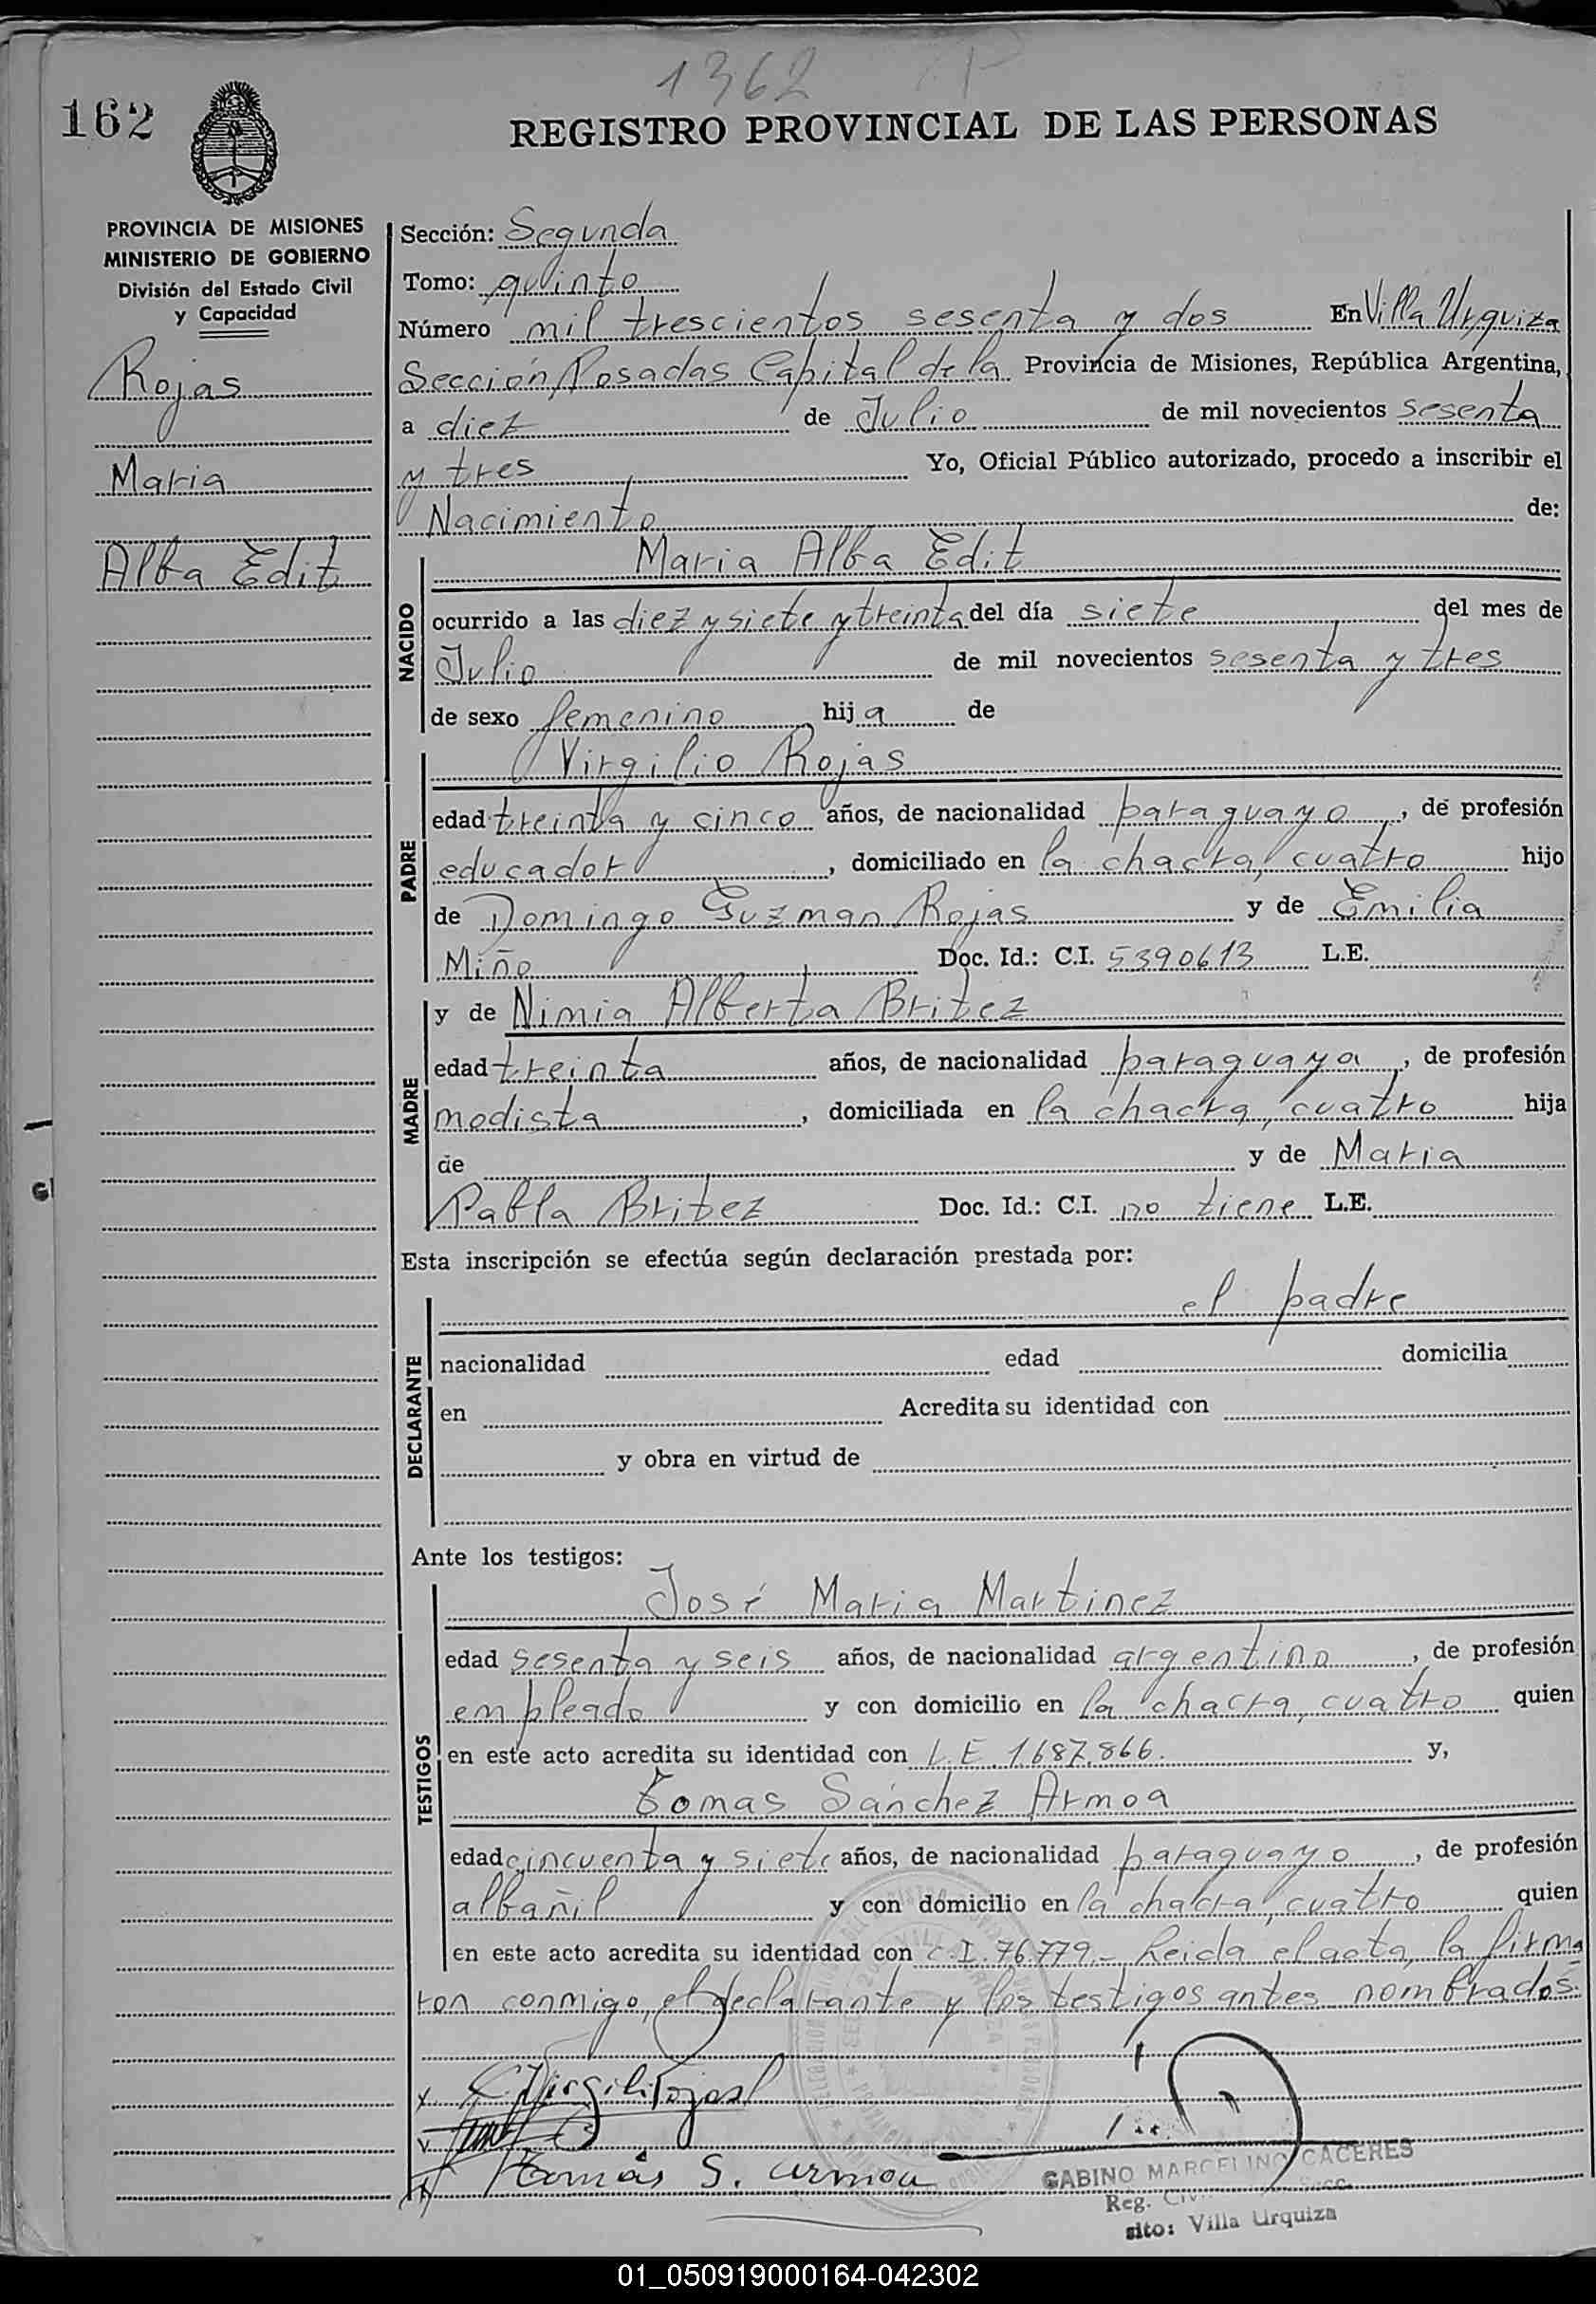 1362
162
REGISTRO PROVINCIAL DE LAS PERSONAS
PROVINCIA DE MISIONES
MINISTERIO DE GOBIERNO
División del Estado Civil
y Capacidad
Rojas
Maria
Alba Edit
Sección: Segunda
Tomo: quinto
Número mil trescientos sesenta y dos En Villa Urquiza
Sección, Posadas Capital de la Provincia de Misiones, República Argentina,
a diez de Julio de mil novecientos sesenta
y tres Yo, Oficial Público autorizado, procedo a inscribir el
Nacimiento de:
NACIDO
Maria Alba Edit
ocurrido a las diez y siete y treinta del día siete del mes de
Julio de mil novecientos sesenta y tres
de sexo femenino hija de
PADRE
Virgilio Rojas
edad treinta y cinco años, de nacionalidad paraguayo, de profesión
educador, domiciliado en la chacra, cuatro hijo
de Domingo Guzman Rojas y de Emilia
Miño Doc. Id.: C.I. 5390613 L.E.
MADRE
y de Nimia Alberta Britez
edad treinta años, de nacionalidad paraguaya, de profesión
modista, domiciliada en la chacra, cuatro hija
de y de Maria
Pabla Britez Doc. Id.: C.I. no tiene L.E.
Esta inscripción se efectúa según declaración prestada por:
DECLARANTE
el padre
nacionalidad edad domicilia
en Acredita su identidad con
y obra en virtud de
Ante los testigos:
TESTIGOS
José Maria Martinez
edad sesenta y seis años, de nacionalidad argentino, de profesión
empleado y con domicilio en la chacra, cuatro quien
en este acto acredita su identidad con L.E. 1.687.866. y,
Tomas Sánchez Armoa
edad cincuenta y siete años, de nacionalidad paraguayo, de profesión
albañil y con domicilio en la chacra, cuatro quien
en este acto acredita su identidad con C.I. 76.779.- Leida el acta, la firma
ron conmigo, el declarante y los testigos antes nombrados.
x Virgilio Rojas
Tomás S. Armoa
GABINO MARCELINO CACERES
Reg.
sito: Villa Urquiza
01_050919000164-042302